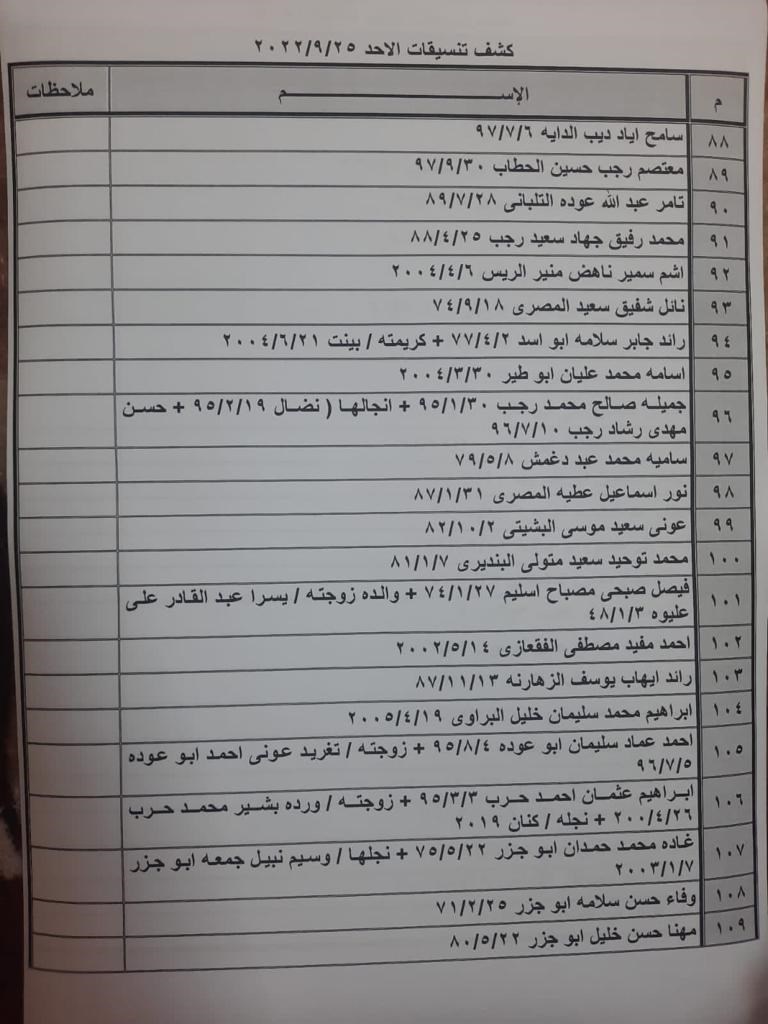 كشف تنسيقات الاحد ٢٠٢٢/٩/٢٥
م الإســـــــــم ملاحظات
٨٨ سامح اياد ديب الدايه ٩٧/٧/٦
٨٩ معتصم رجب حسين الحطاب ٩٧/٩/٣٠
٩٠ تامر عبد الله عوده التلبانى ٨٩/٧/٢٨
٩١ محمد رفيق جهاد سعيد رجب ٨٨/٤/٢٥
٩٢ اشم سمير ناهض منير الريس ٢٠٠٤/٤/٦
٩٣ نائل شفيق سعيد المصرى ٧٤/٩/١٨
٩٤ رائد جابر سلامه ابو اسد ٧٧/٤/٢ + كريمته / بينت ٢٠٠٤/٦/٢١
٩٥ اسامه محمد عليان ابو طير ٢٠٠٤/٣/٣٠
٩٦ جميله صالح محمد رجب ٩٥/١/٣٠ + انجالها ( نضال ٩٥/٢/١٩ + حسن
مهدى رشاد رجب ٩٦/٧/١٠
٩٧ ساميه محمد عبد دغمش ٧٩/٥/٨
٩٨ نور اسماعيل عطيه المصرى ٨٧/١/٣١
٩٩ عونى سعيد موسى البشيتى ٨٢/١٠/٢
١٠٠ محمد توحيد سعيد متولى البنديرى ٨١/١/٧
١٠١ فيصل صبحى مصباح اسليم ٧٤/١/٢٧ + والده زوجته / يسرا عبد القادر على
عليوه ٤٨/١/٣
١٠٢ احمد مفيد مصطفى الفقعازى ٢٠٠٢/٥/١٤
١٠٣ رائد ايهاب يوسف الزهارنه ٨٧/١١/١٣
١٠٤ ابراهيم محمد سليمان خليل البراوى ٢٠٠٥/٤/١٩
١٠٥ احمد عماد سليمان ابو عوده ٩٥/٨/٤ + زوجته / تغريد عونى احمد ابو عوده
٩٦/٧/٥
١٠٦ ابراهيم عثمان احمد حرب ٩٥/٣/٣ + زوجته / ورده بشير محمد حرب
٢٠٠/٤/٢٦ + نجله / كنان ٢٠١٩
١٠٧ غاده محمد حمدان ابو جزر ٧٥/٥/٢٢ + نجلها / وسيم نبيل جمعه ابو جزر
٢٠٠٣/١/٧
١٠٨ وفاء حسن سلامه ابو جزر ٧١/٢/٢٥
١٠٩ مهنا حسن خليل ابو جزر ٨٠/٥/٢٢